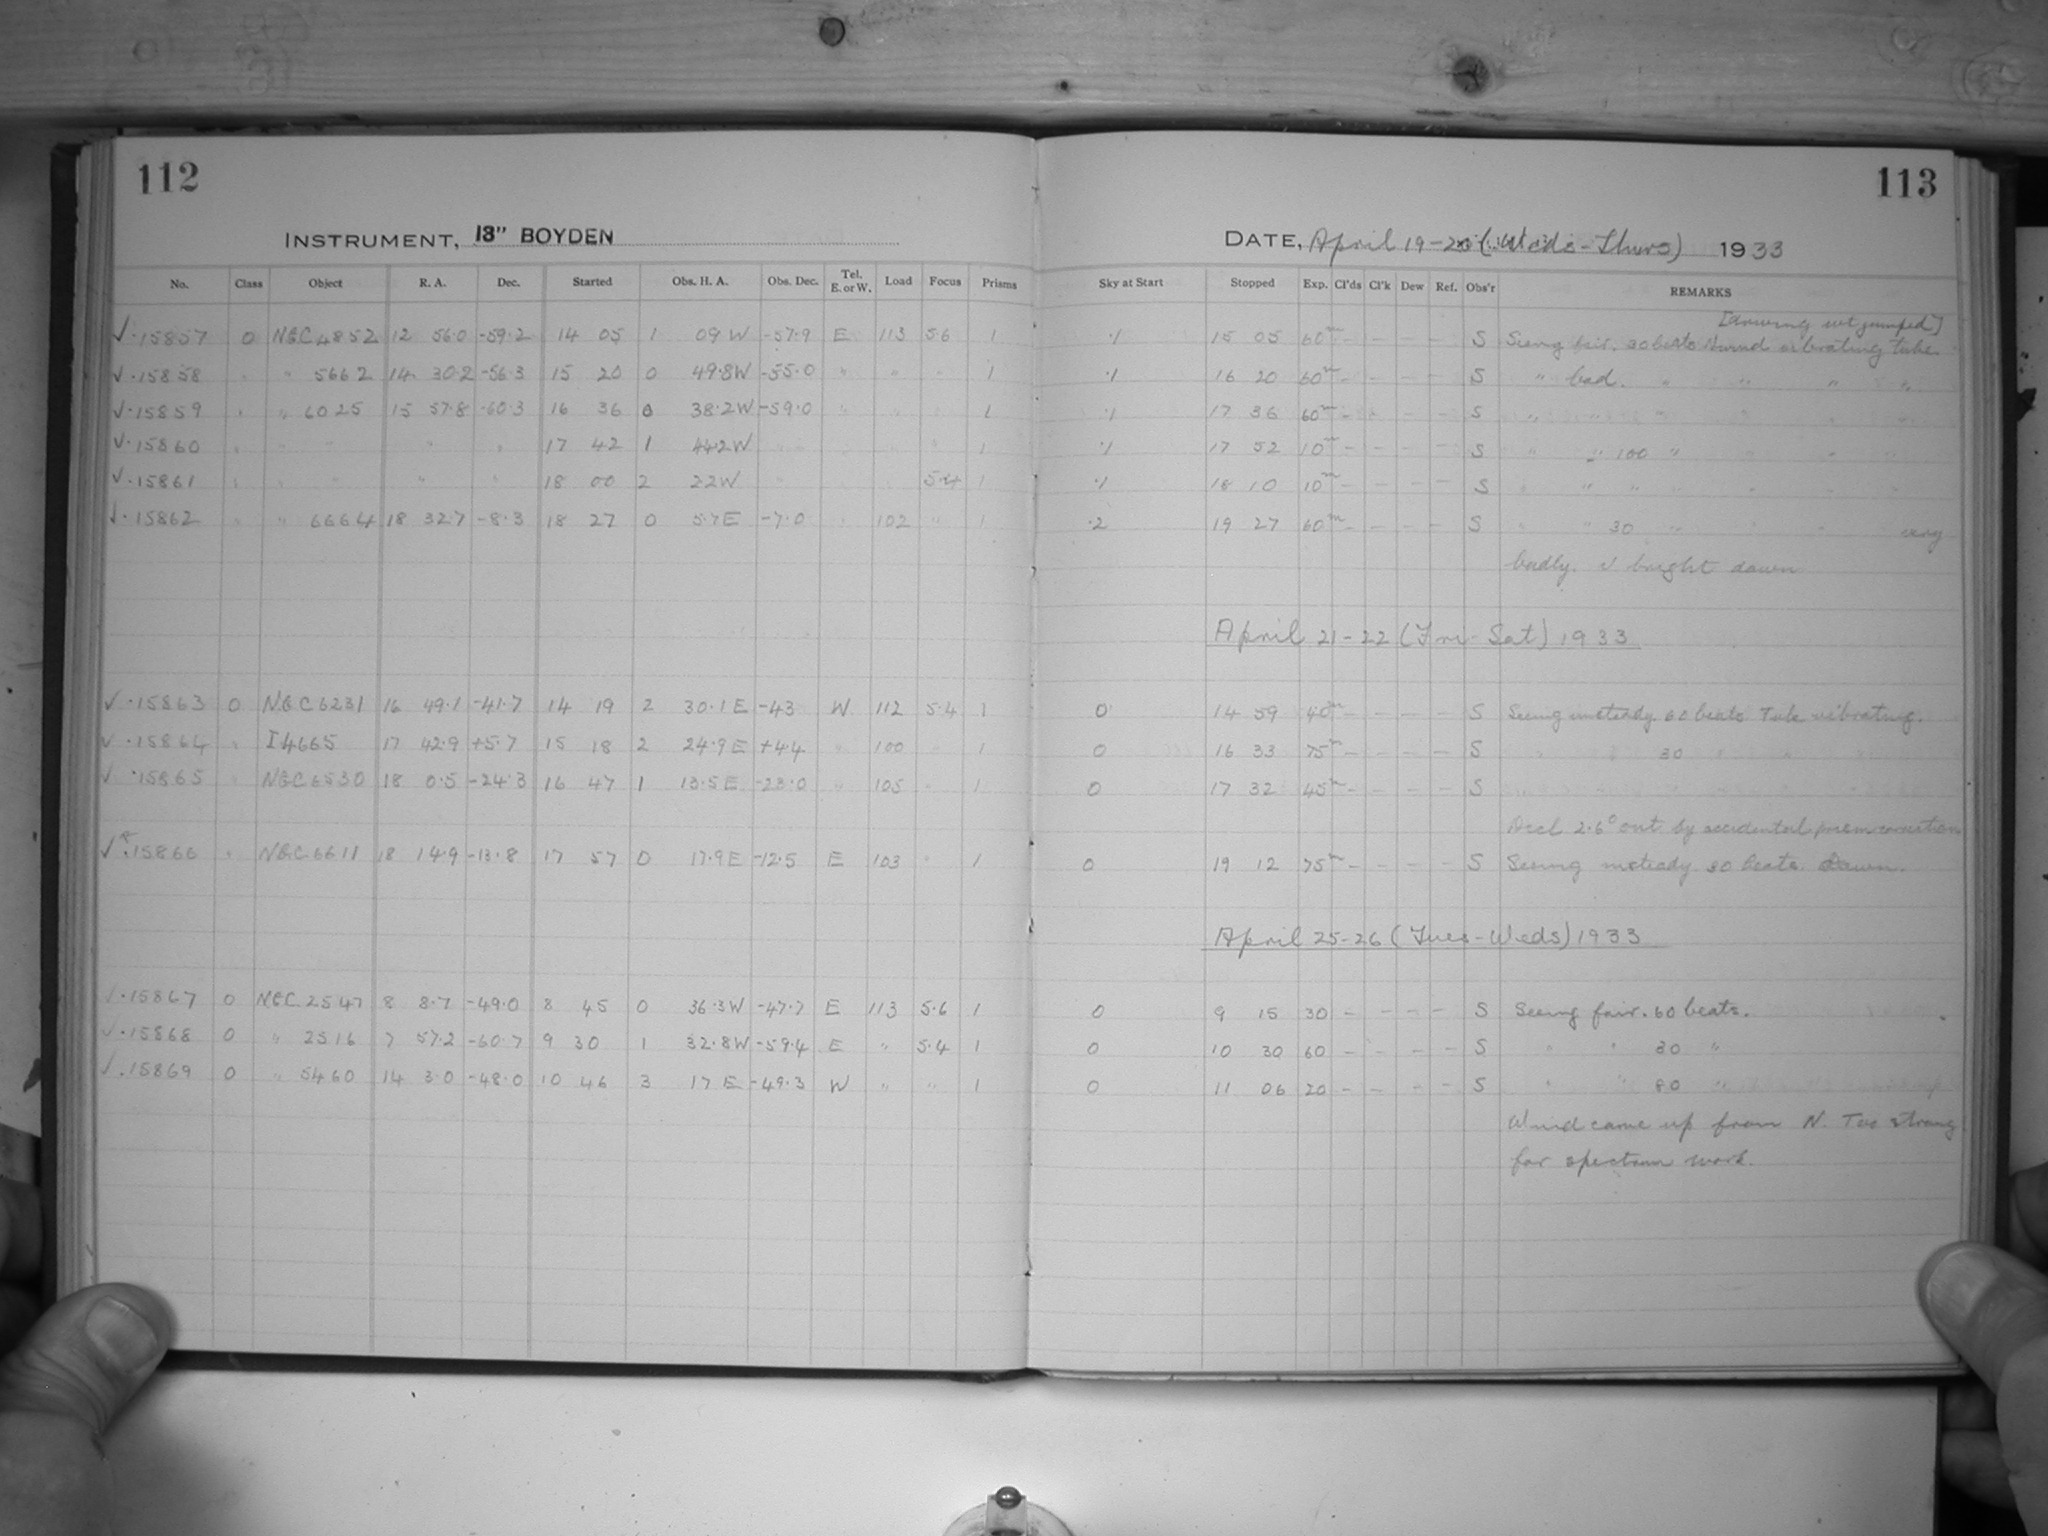 112
113
INSTRUMENT, 13" BOYDEN
DATE, April 19-20 (Weds-Thurs) 1933
No. Class Object R. A. Dec. Started Obs. H. A. Obs. Dec. Tel. E. or W. Load Focus Prisms Sky at Start Stopped Exp. Cl'ds Cl'k Dew Ref. Obs'r REMARKS
√·15857 0 NGC 4852 12 56.0 -59.2 14 05 1 09 W -57.9 E 113 5.6 1 ·1 15 05 60m - - - - S Seeing fair. 30 beats wind vibrating tube
√·15858 " " 5662 14 30.2 -56.3 15 20 0 49.8W -55.0 " " " 1 ·1 16 20 60m - - - - S " bad. " " " "
√·15859 " " 6025 15 57.8 -60.3 16 36 0 38.2W -59.0 " " " 1 ·1 17 36 60m - - - - S " " " " " "
√·15860 " " " " " 17 42 1 44.2W " " " " 1 ·1 17 52 10m - - - - S " " 100 " " " "
√·15861 " " " " " 18 00 2 22W " " " 5.4 1 ·1 18 10 10m - - - - S " " " " " "
√·15862 " " 6664 18 32.7 -8.3 18 27 0 5.7E -7.0 " 102 " 1 ·2 19 27 60m - - - - S " " 30 " " " very
badly. √ bright dawn
April 21-22 (Fri-Sat) 1933
√·15863 0 NGC 6231 16 49.1 -41.7 14 19 2 30.1 E -43 W 112 5.4 1 0 14 59 40m - - - - S Seeing unsteady 60 beats Tube vibrating.
√·15864 " I 4665 17 42.9 +5.7 15 18 2 24.9E +4.4 " 100 " 1 0 16 33 75m - - - - S " " 30 " " "
√·15865 " NGC 6530 18 0.5 -24.3 16 47 1 13.5E -23.0 " 105 " 1 0 17 32 45m - - - - S " " " " " "
Decl 2.6° out by accidental prism correction
√·15866 " NGC 6611 18 14.9 -13.8 17 57 0 17.9E -12.5 E 103 " 1 0 19 12 75m - - - - S Seeing unsteady 30 beats. Dawn.
April 25-26 (Tues-Weds) 1933
√·15867 0 NGC 2547 8 8.7 -49.0 8 45 0 36.3W -47.7 E 113 5.6 1 0 9 15 30 - - - - S Seeing fair. 60 beats.
√·15868 0 " 2516 7 57.2 -60.7 9 30 1 32.8W -59.4 E " 5.4 1 0 10 30 60 - - - - S " " 30 "
√·15869 0 " 5460 14 3.0 -48.0 10 46 3 17 E -49.3 W " " 1 0 11 06 20 - - - - S " " 80 "
Wind came up from N. Too strong
for spectrum work.